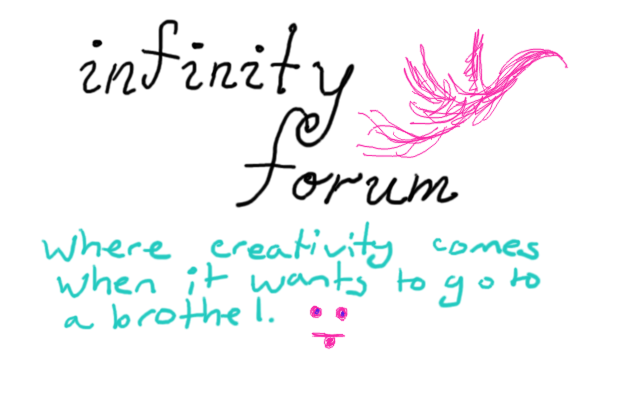 infinity
forum
where creativity comes
when it wants to go to
a brothel.